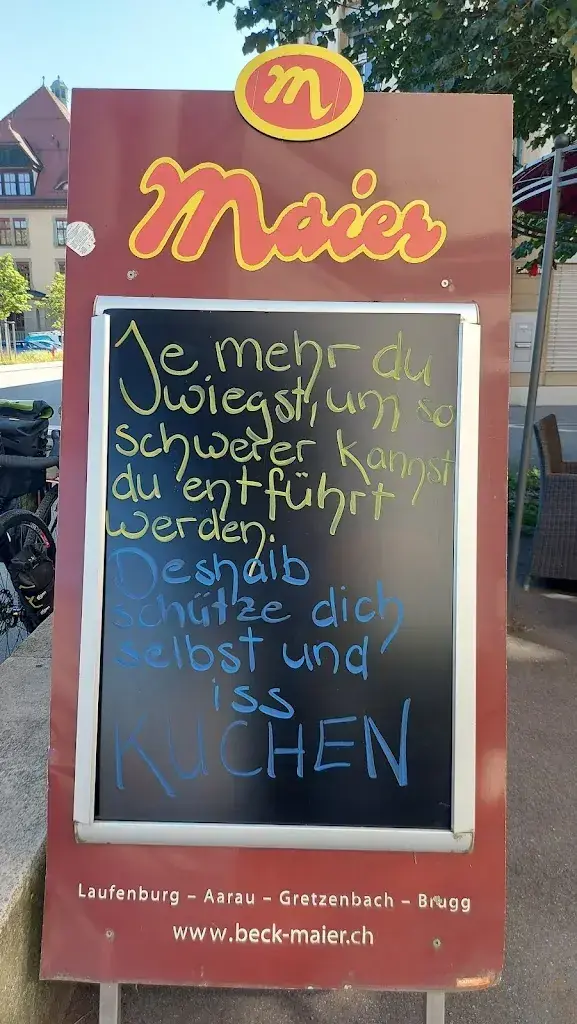 m
Maier
Je mehr du
wiegst, um so
schwerer kannst
du entführt
werden.
Deshalb
schütze dich
selbst und
iss
KUCHEN
Laufenburg – Aarau – Gretzenbach – Brugg
www.beck-maier.ch